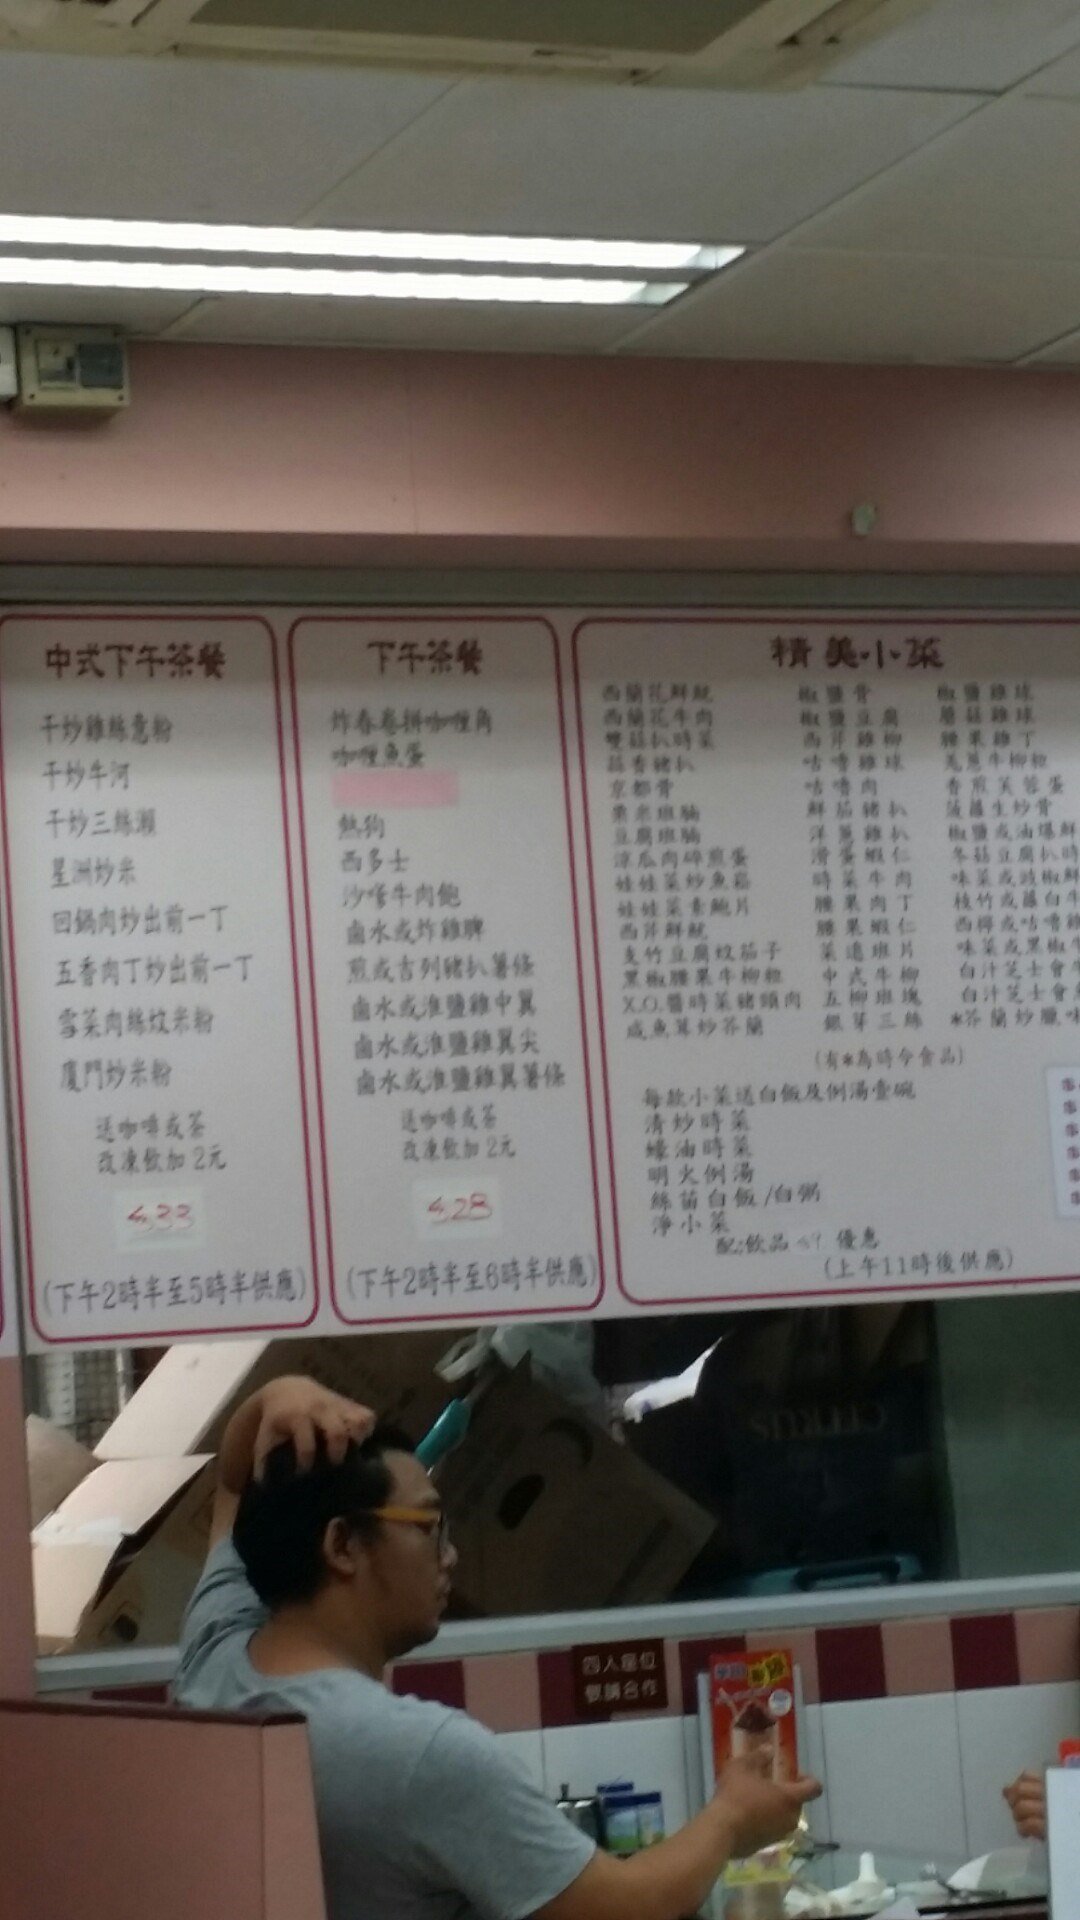 中式下午茶餐
干炒雞絲意粉
干炒牛河
干炒三絲瀨
星洲炒米
回鍋肉炒出前一丁
五香肉丁炒出前一丁
雪菜肉絲炆米粉
廈門炒米粉
送咖啡或茶
改凍飲加2元
33
(下午2時半至5時半供應)
下午茶餐
炸春卷拼咖喱角
咖喱魚蛋
熱狗
西多士
沙嗲牛肉飽
鹵水或炸雞髀
煎或吉列豬扒薯條
鹵水或淮鹽雞中翼
鹵水或淮鹽雞翼尖
鹵水或淮鹽雞翼薯條
送咖啡或茶
改凍飲加2元
28
(下午2時半至6時半供應)
精美小菜
西蘭花鮮魷
西蘭花牛肉
雙菇扒時菜
蒜香豬扒
京都骨
粟米班腩
豆腐班腩
涼瓜肉碎煎蛋
娃娃菜炒魚崧
娃娃菜素鮑片
西芹鮮魷
支竹豆腐炆茄子
黑椒腰果牛柳粒
X.O.醬時菜豬頸肉
咸魚茸炒芥蘭
椒鹽骨
椒鹽豆腐
西芹雞柳
咕嚕雞球
咕嚕肉
鮮茄豬扒
洋蔥雞扒
滑蛋蝦仁
時菜牛肉
腰果肉丁
腰果蝦仁
菜遠班片
中式牛柳
五柳班塊
銀芽三絲
椒鹽雞球
蘑菇雞球
腰果雞丁
羌蔥牛柳粒
香煎芙蓉蛋
菠蘿生炒骨
椒鹽或油爆鮮
冬菇豆腐扒時
味菜或豉椒鮮
枝竹或蘿白牛
西檸或咕嚕雞
味菜或黑椒牛
白汁芝士會
白汁芝士會
*芥蘭炒臘味
(有*為時令食品)
每款小菜送白飯及例湯壹碗
清炒時菜
蠔油時菜
明火例湯
絲苗白飯/白粥
淨小菜
配飲品 優惠
(上午11時後供應)
四人座位
敬請合作